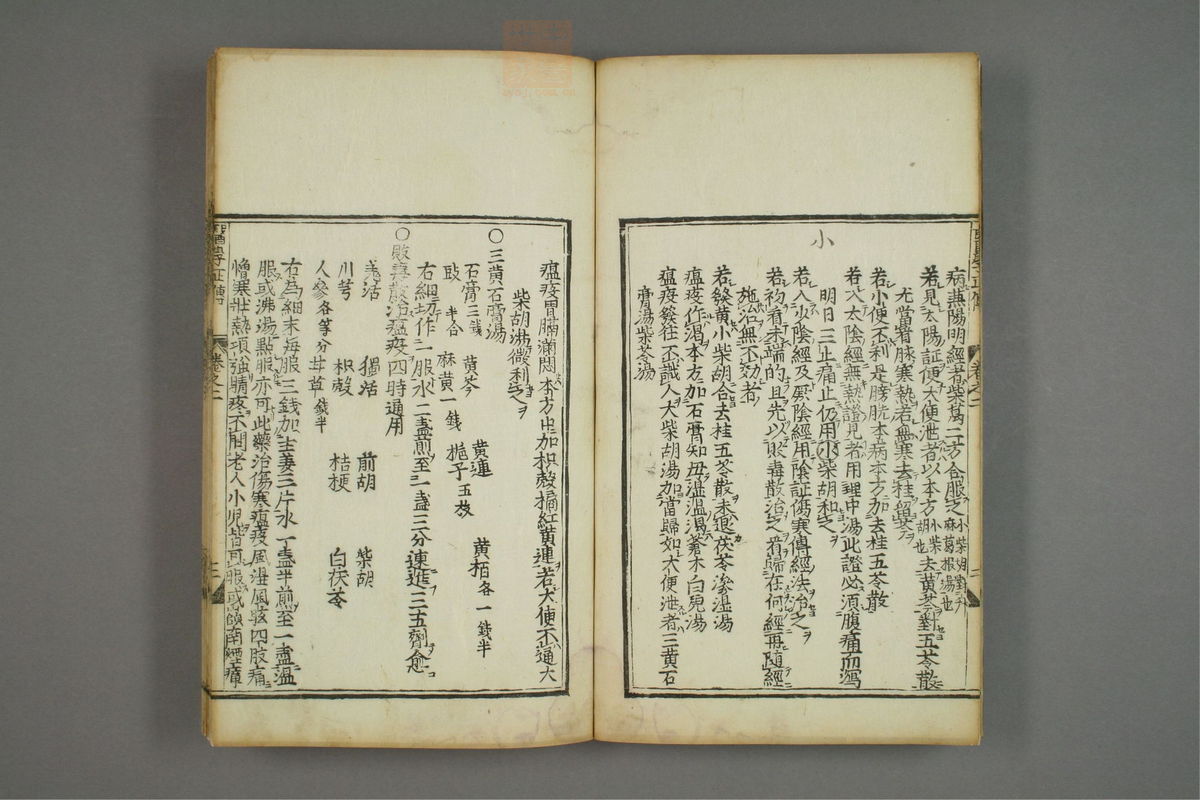 病兼陽明經者柴葛二方合服之小柴胡對升麻葛根湯也
若見太陽証便大便泄者以本方小柴胡也去黃芩對五苓散
尤當看脉寒熱若無寒去桂留
若小便不利是膀胱本病本方加去桂五苓散
若入太陰經無熱證見者用理中湯此證必須腹痛而瀉
明日三止痛止仍用小柴胡和之
若入少陰經及厥陰經用陰証傷寒傳經法治之
若初看未端的且先以敗毒散治之看歸在何經再隨經
施治無不効者
若發黃小柴胡合去桂五苓散未退茯苓滲湿湯
瘟疫作渴本方加石膏知母湿温渴蒼木白虎湯
瘟疫發狂不識人大柴胡湯加當歸如大便泄者三黃石
膏湯柴苓湯
小
醫學正傳
卷之二
瘟疫胃膈滿悶本方中加枳殻橘紅黃連若大便不通大
柴胡湯微利之
○三黃石膏湯
石膏三錢 黃芩 黃連 黃栢各一錢半
豉半合 麻黃一錢 梔子五枚
右細切作一服水二盞煎至一盞三分連進三五劑愈
○敗毒散治瘟疫四時通用
羌活 獨活 前胡 柴胡
川芎 枳殻 桔梗 白茯苓
人參各等分 甘草錢半
右為細末每服三錢加生姜三片水一盞半煎至一盞温
服或沸湯點服亦可此藥治傷寒瘟疫風湿風眩四肢痛
憎寒壯熱項強睛疼不問老人小兒皆可服或嶺南烟瘴